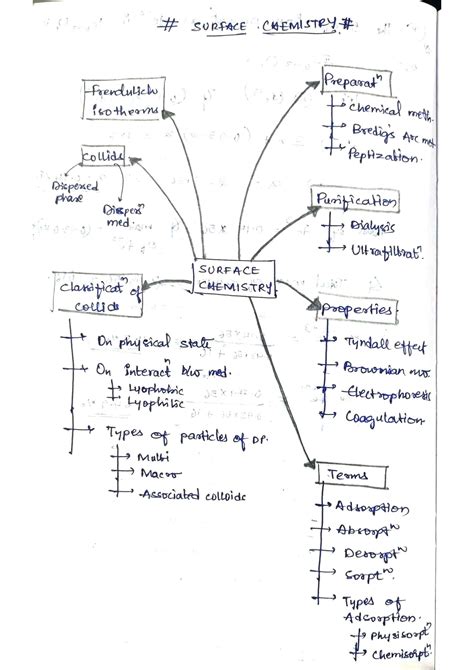 # SURFACE CHEMISTRY #
Frendulich
isotherms
Collids
Dispersed
phase
Dispersn
med.
Clasificatn of
collids
On physical state
On interactn b/w med.
Lyophobic
Lyophilic
Types of particles of DP.
Multi
Macro
Associated colloids
SURFACE
CHEMISTRY
Preparatn
Chemical meth.
Bredig's Arc met
Peptization.
Purification
Dialysis
Ultrafiltratn
Properties
Tyndall effect
Brownian mov.
Electrophoresis
Coagulation
Terms
Adsorption
Absorptn
Desorptn
Sorptn.
Types of
Adsorption.
Physisorptn
Chemisorptn